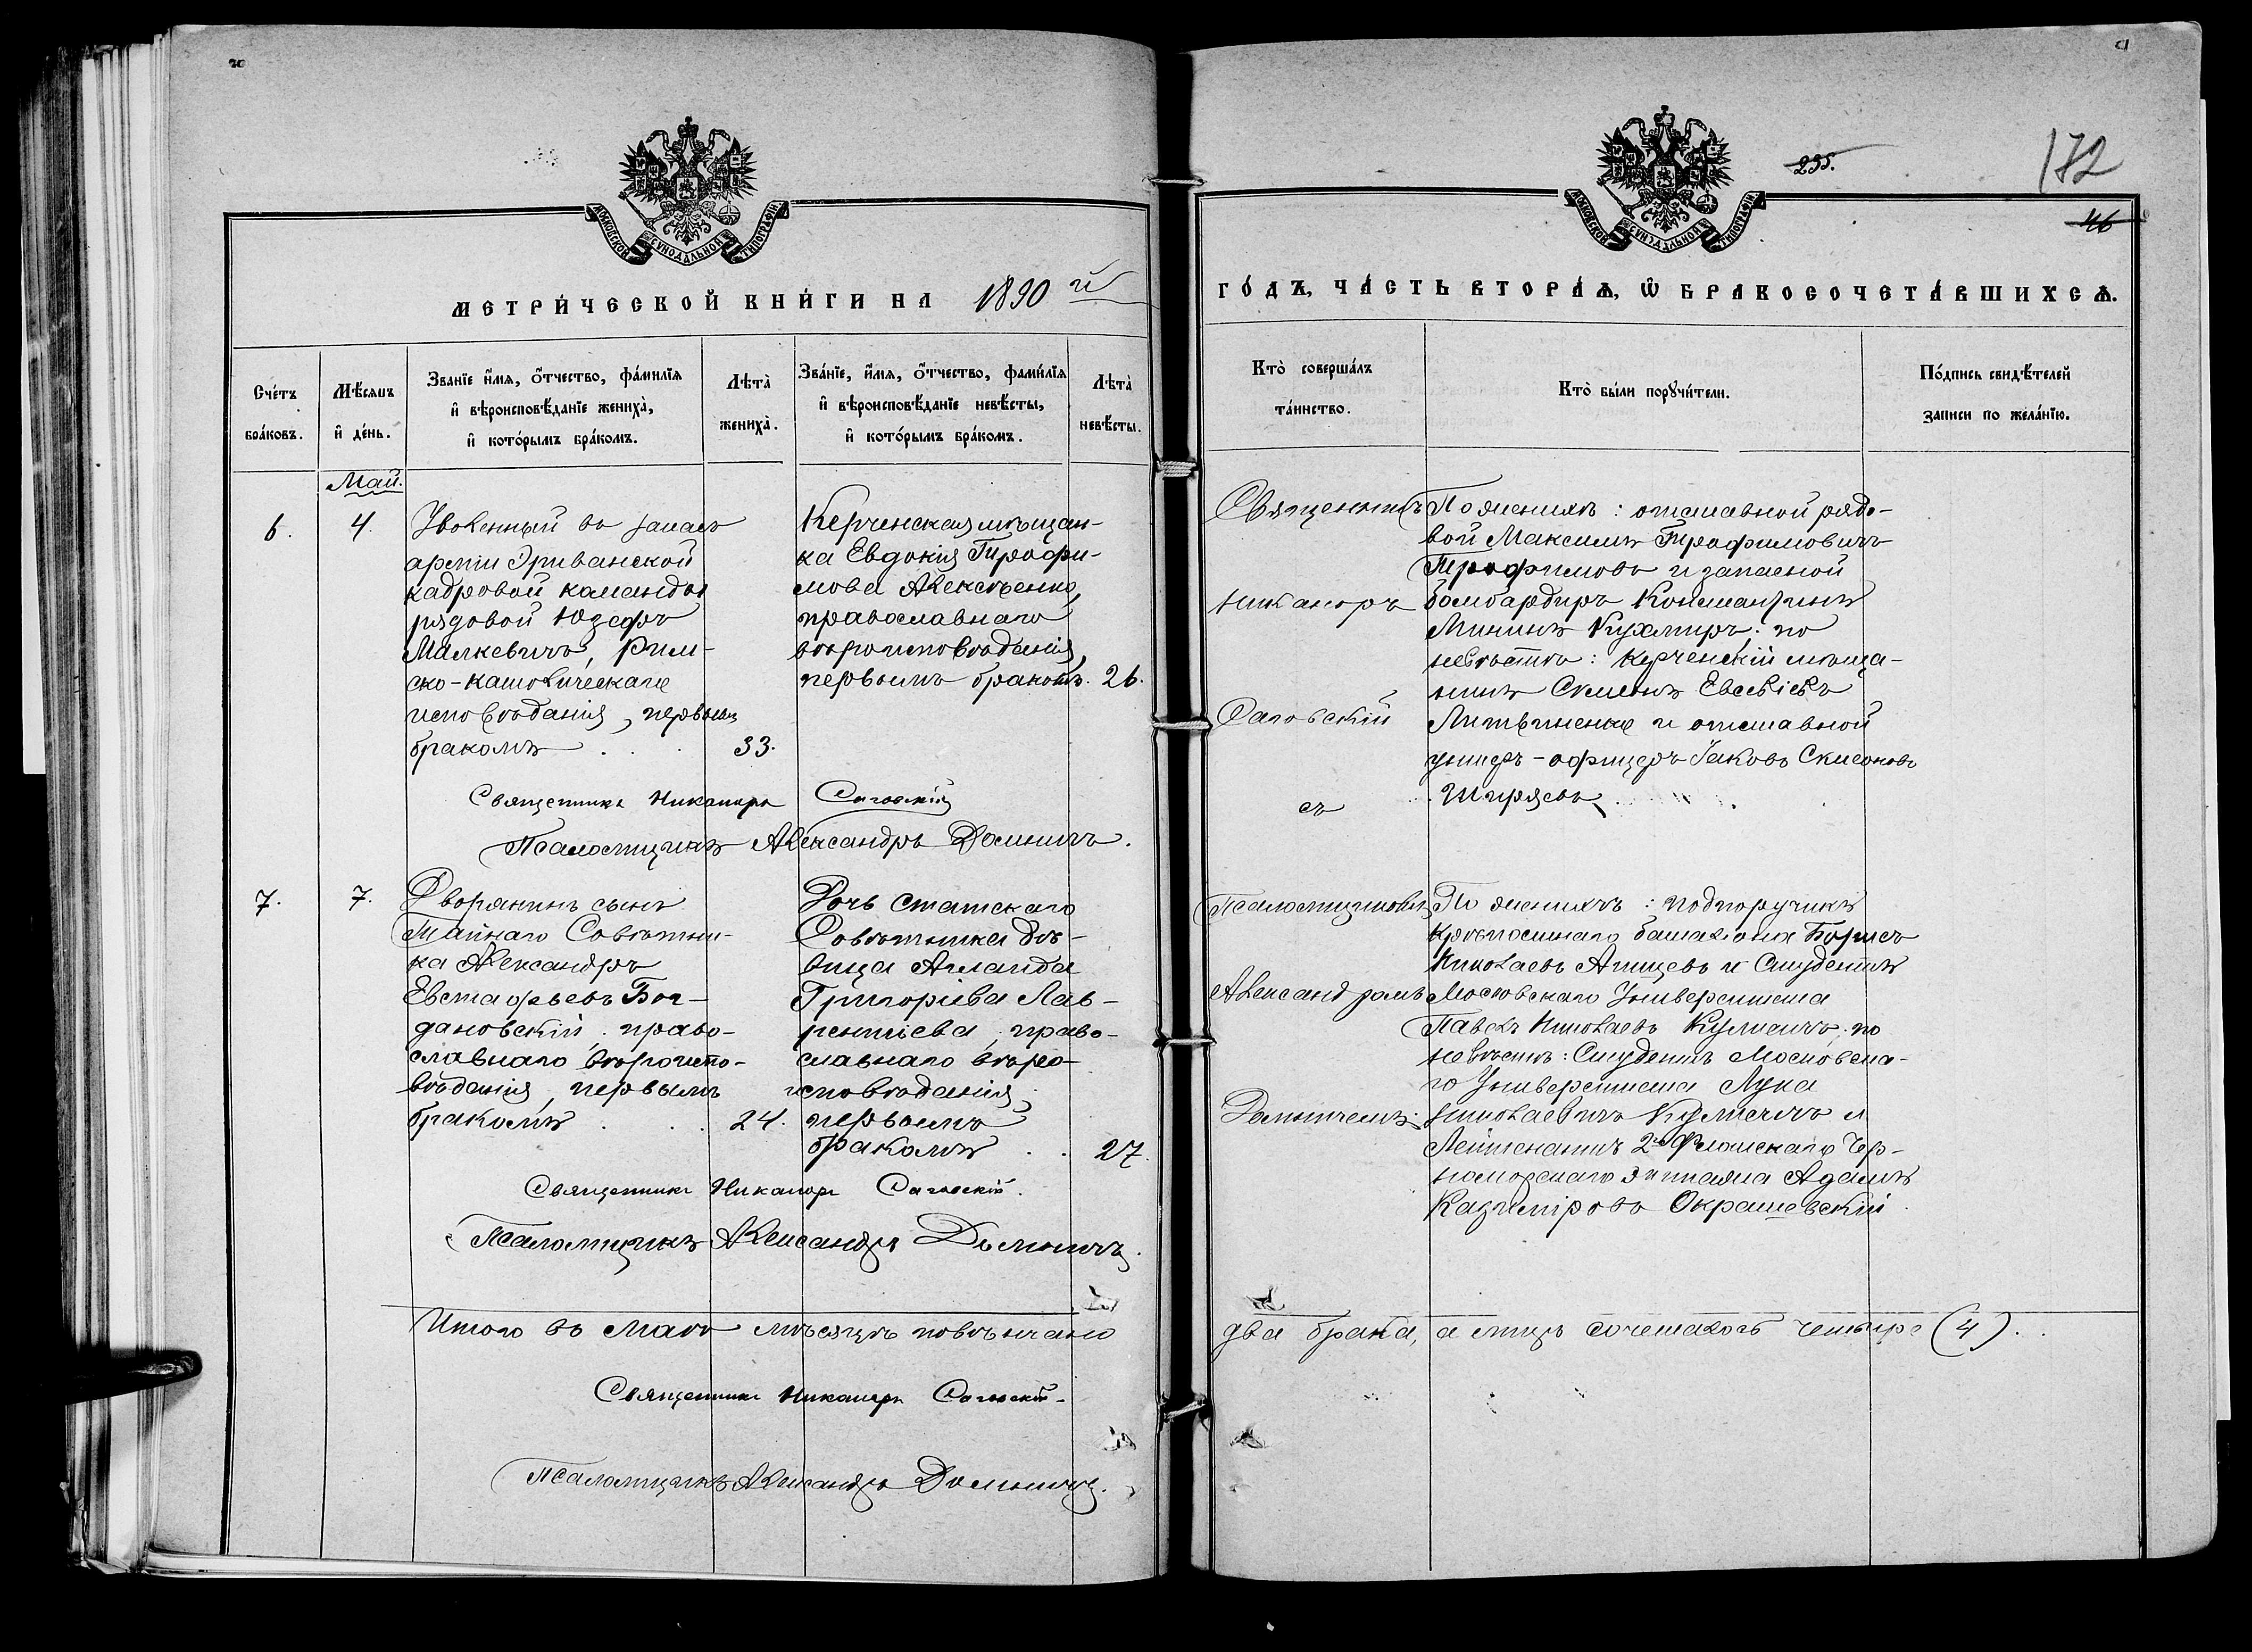 МОСКОВСКОЙ СѴНОДАЛЬНОЙ ТИПОГРАФІИ
МЕТРИ́ЧЕСКОЙ КНИ́ГИ НА 1890 й
Сче́тъ бра́ковъ.
Мѣ́сяцъ и҆ де́нь.
Зва́нїе и҆́мя, ѻ҆́тчество, фамѝлїя и҆ вѣроисповѣ́данїе жениха̀, и҆ кото́рымъ бра́комъ.
Лѣта̀ жениха̀.
Зва́нїе, и҆́мя, ѻ҆́тчество, фамѝлїя и҆ вѣроисповѣ́данїе невѣ́сты, и҆ кото́рымъ бра́комъ.
Лѣта̀ невѣ́сты.
Май.
6.
4.
Уволенный въ запасъ
арміи Эриванской
кадровой команды
рядовой Юзефъ
Малкевичъ, Рим-
ско-католическаго
исповѣданія, первымъ
бракомъ . . . 33.
Керченская мѣщан-
ка Евдокія Трофи-
мова Алексѣенко,
православнаго
вѣроисповѣданія,
первымъ бракомъ. 26.
Священникъ Никаноръ Саговскій
Псаломщикъ Александръ Домничъ.
7.
7.
Дворянинъ сынъ
Тайнаго Совѣтни-
ка Александръ
Евстафьевъ Бог-
дановскій, право-
славнаго вѣроиспо-
вѣданія, первымъ
бракомъ . . . 24.
Дочь статскаго
Совѣтника дѣ-
вица Аглаида
Григоріева Лав-
рентіева, право-
славнаго вѣро-
исповѣданія,
первымъ
бракомъ . . 27.
Священникъ Никаноръ Саговскій.
Псаломщикъ Александръ Домничъ.
Итого въ маѣ мѣсяцѣ повѣнчано
Священникъ Никаноръ Саговскій.
Псаломщикъ Александръ Домничъ.
МОСКОВСКОЙ СѴНОДАЛЬНОЙ ТИПОГРАФІИ
235.
172
46
ГО́ДЪ, ЧА́СТЬ ВТОРА́Ѧ, Ѡ҆ БРАКОСОЧЕТА́ВШИХСѦ.
Кто̀ соверша́лъ та́инство.
Кто̀ бы́ли порꙋчи́тели.
По́дпись свидѣ́телей записи по жела́нїю.
Священникъ
Никаноръ
Саговскій
съ
По женихѣ: отставной рядо-
вой Максимъ Трофимовичъ
Трофимовъ и запасной
бомбардиръ Константинъ
Мининъ Кухмиръ; по
невѣстѣ: Керченскій мѣща-
нинъ Семенъ Евсевіевъ
Литвиненко и отставной
унтеръ-офицеръ Іаковъ Симоновъ
Ширяевъ
Псаломщикомъ
Александромъ
Домничемъ.
По женихѣ: подпоручикъ
крѣпостнаго баталіона Борисъ
Николаевъ Апицевъ и Студентъ
Московскаго Университета
Павелъ Николаевъ Кульженко; по
невѣстѣ: Студентъ Московска-
го Университета Лука
Николаевичъ и
Лейтенантъ 2го Флотскаго Чер-
номорскаго экипажа Адамъ
Казиміровъ Окрашевскій.
два брака, а лицъ сочеталось четыре (4). . .